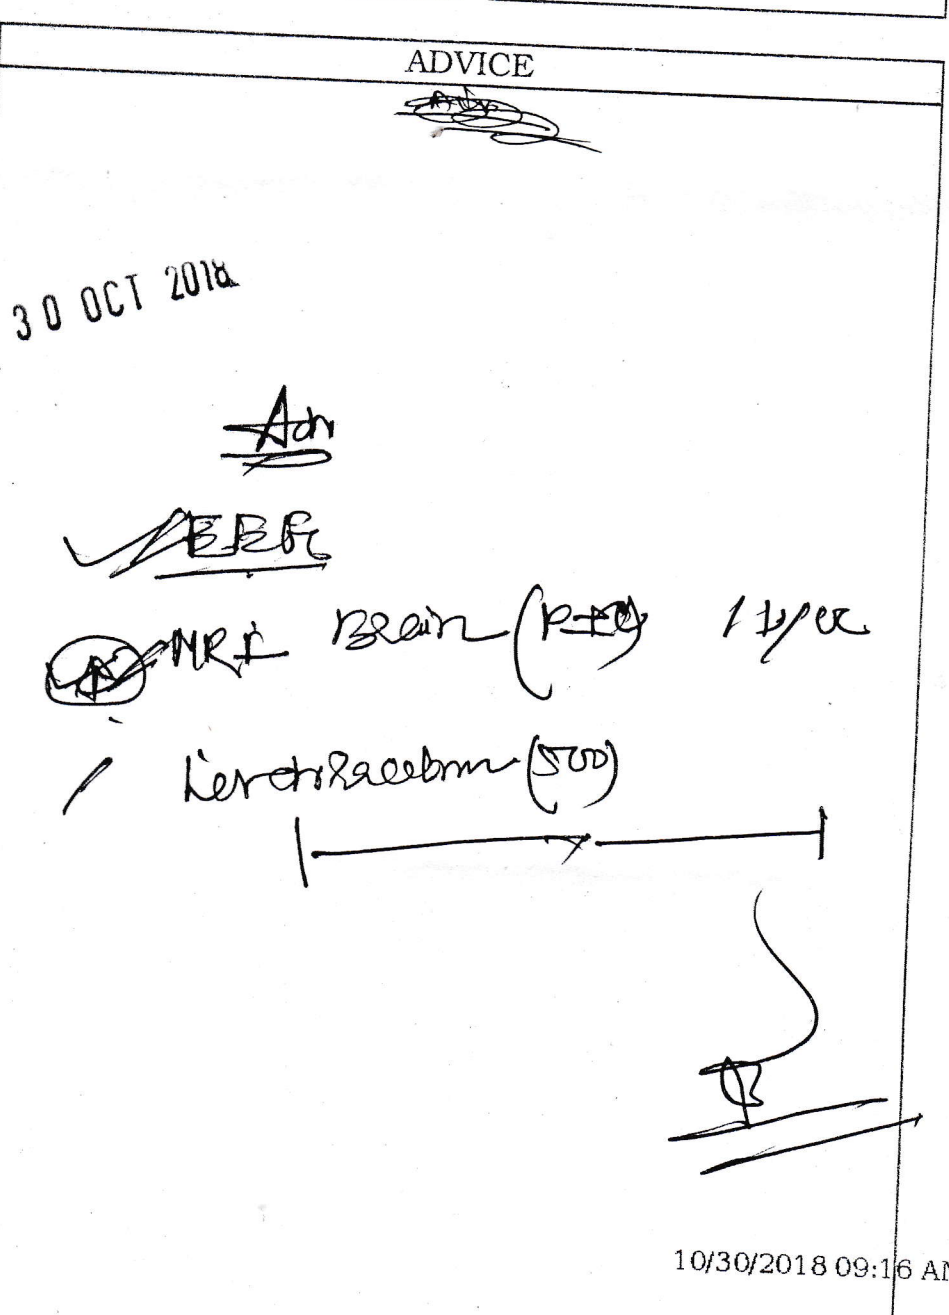 ADVICE
30 OCT 2018
Adv
EEG
MRI Brain (P+C)
Levetiracetam (500)
10/30/2018 09:16 AM